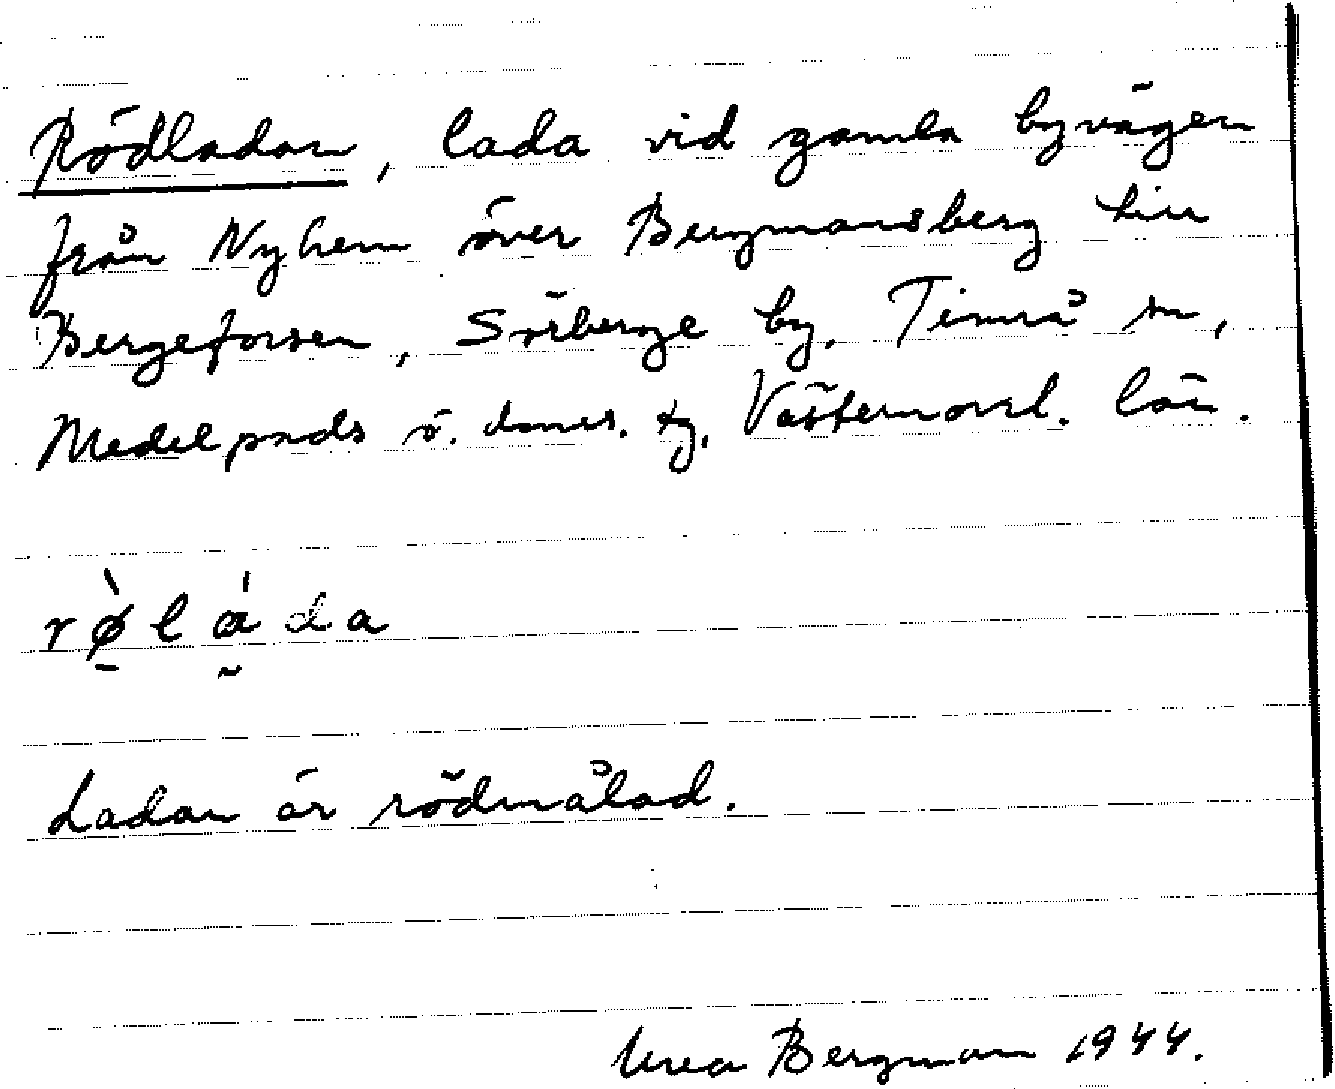 Rödladan, lada vid gamla byvägen
från Nyhem över Bergmansberg till
Bergeforsen, Sörberge by, Timrå sn,
Medelpads ö. doms. tg, Västernorrl. län.
rø̀lá̰da
Ladan är rödmålad.
Bergman 1944.